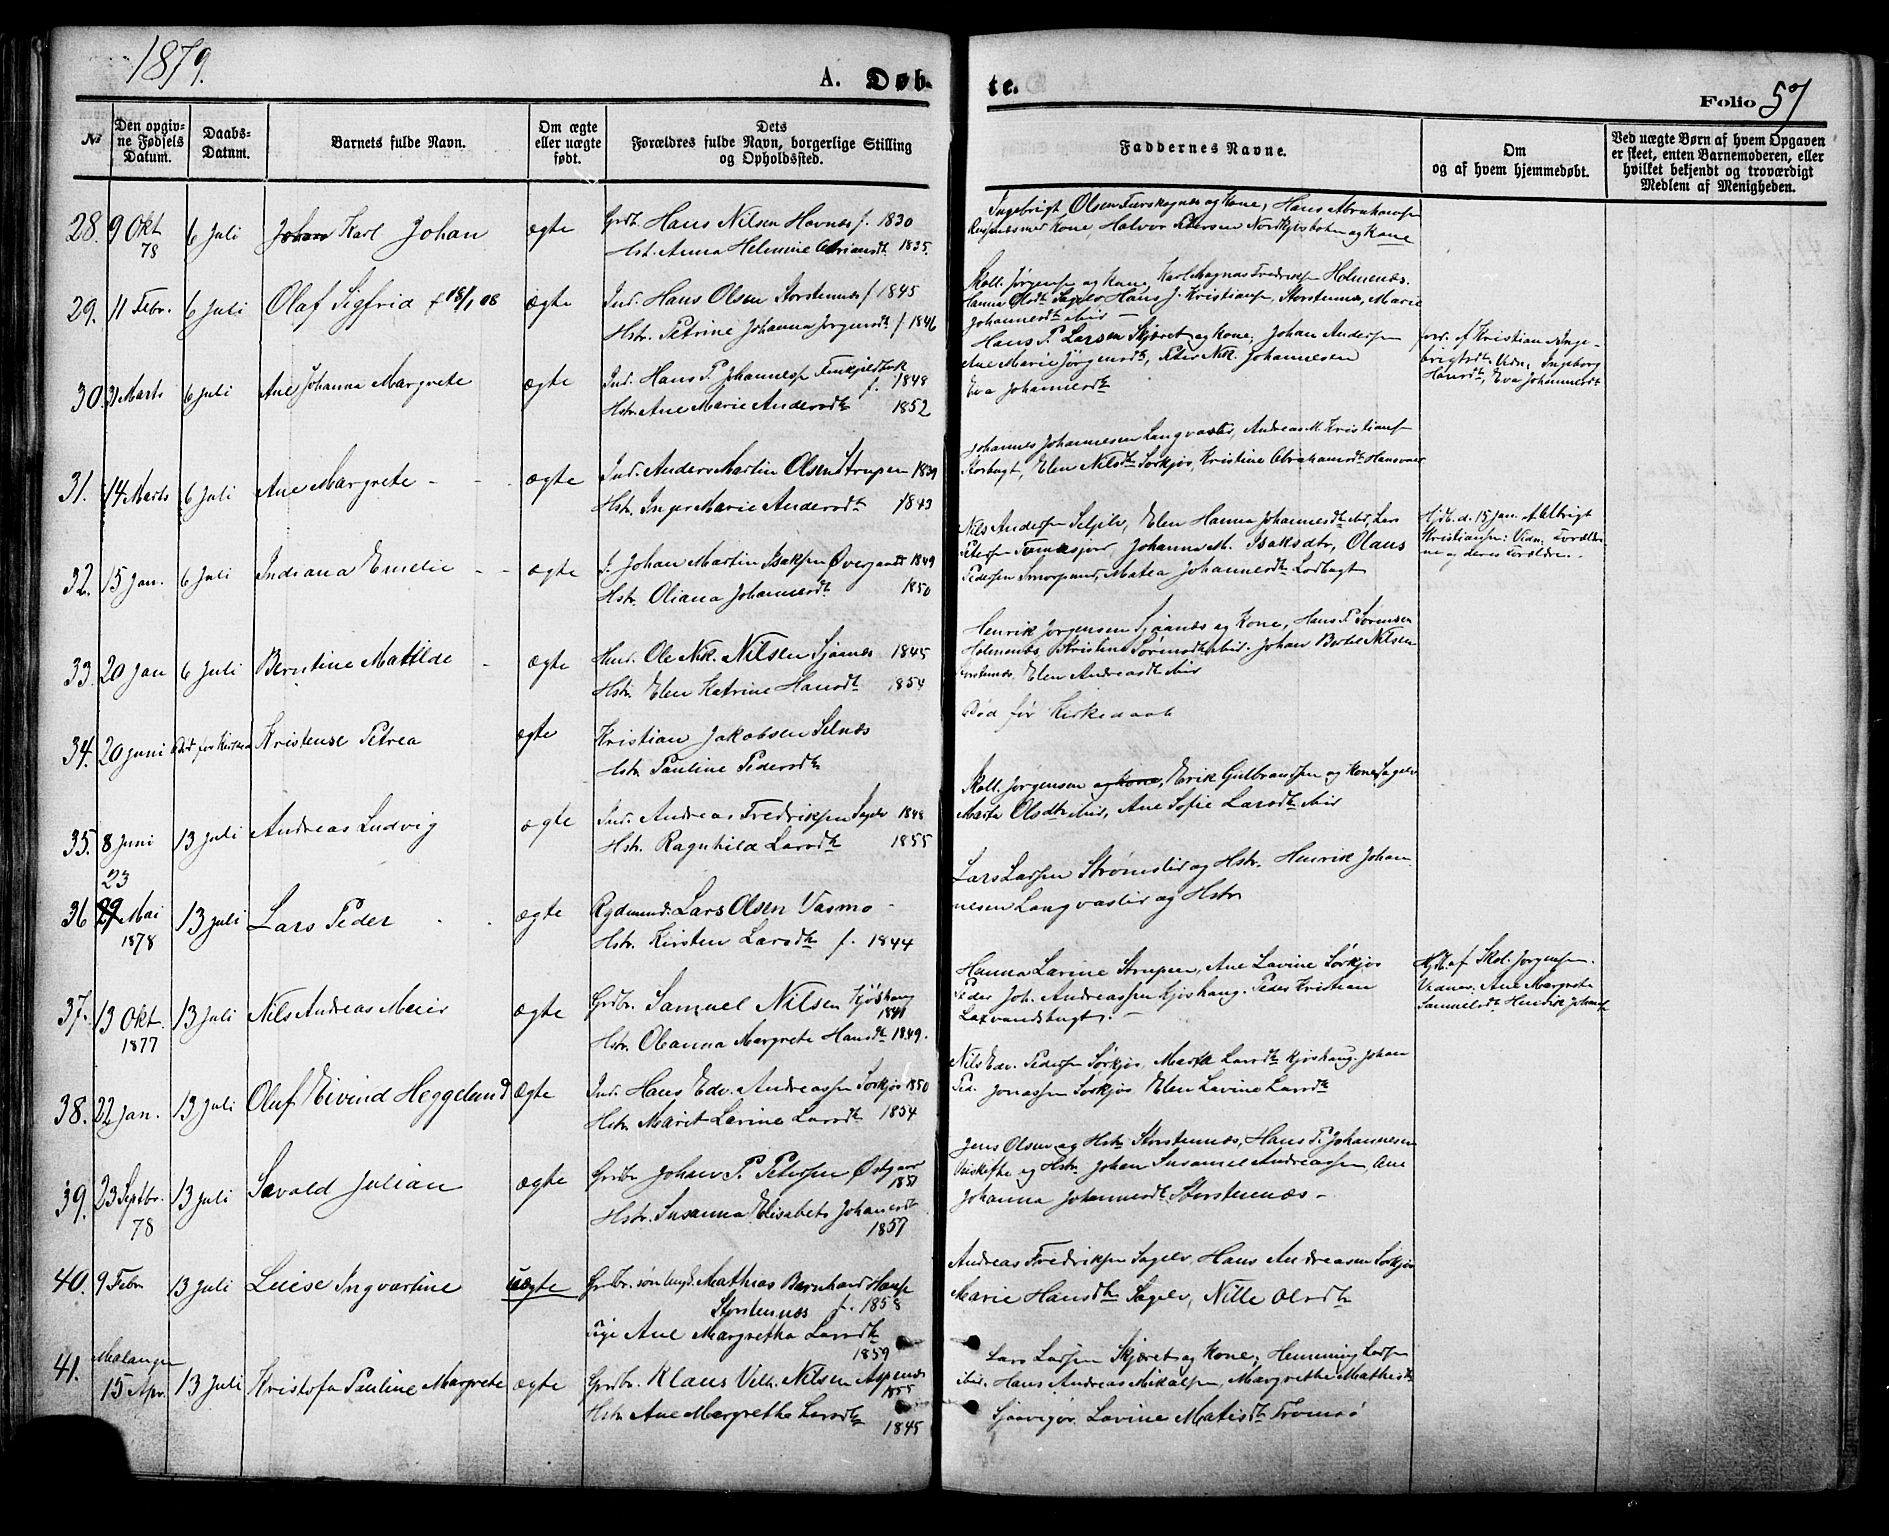 1879.
A. Døb-
te.
Folio 57
№
Den opgiv-
ne Fødsels
Datum.
Daabs-
Datum.
Barnets fulde Navn.
Om ægte
eller uægte
født.
Dets
Forældres fulde Navn, borgerlige Stilling
og Opholdssted.
Faddernes Navne.
Om
og af hvem hjemmedøbt.
Ved uægte Børn af hvem Opgaven
er skeet, enten Barnemoderen, eller
hvilket bekjendt og troværdigt
Medlem af Menigheden.
28. 9 Okt 78 6 Juli Johan Karl Johan ægte Grdb. Hans Nilsen Havnes f. 1830
Hst. Anna Helmine Adriansdt. 1835.
Ingebrigt Olsen og Kone, Hans Abrahamsen
Kone, Halvor Pedersen Nordkjosbotn og Kone
29. 11 Febr. 6 Juli Olaf Sigfrid † 18/1 08 ægte Ind. Hans Olsen Storstennæs f 1845
Hstr. Petrine Johanna Jørgensdt f 1846
Skoll. Jørgensen og Kone, Karl Magnus Fredriksen Holmenæs.
Hanna Olsdt Sagelv Hans J. Kristiansen, Storstennæs, Marie
Johannesdt ibid —
30. 31 Marts 6 Juli Ane Johanna Margrete ægte Ind. Hans P. Johannessen f. 1848
Hstr. Ane Marie Andersdt 1852
Hans P. Larsen Skjæret og Kone, Johan Andersen
Ane Marie Jørgensdt, Peter Nik. Johannesen
Eva Johannesdt
af Kristian Inge-
brigtsdt. Vidn. Ingeborg
Hansdt, Eva Johannesdt
31. 14 Marts 6 Juli Ane Margrete - - - ægte Ind. Anders Martin Olsen Strupen 1839
Hstr. Inger Marie Andersdt 1843
Johannes Johannesen Langvaslid, Andreas M. Kristiansen
Elen Nilsdt Sørkjos, Kristine Abrahamsdt
32. 15 Jan. 6 Juli Indiana Emelie - - ægte Johan Martin Isaksen Øvergaard 1849
Hstr. Oliana Johannesdt 1850
Nils Andersen Selelv, Elen Hanna Johannesdt ibid, Lars
Petersen Johanna M. Isaksdtr, Olaus
Pedersen Matea Johannesdt
Hjdb. d. 15 Jan. af Albrigt
Kristiansen: Vidn. Foreldre-
ne og deres Foreldre. -
33. 20 Jan 6 Juli Berntine Matilde - ægte Ole Nik. Nilsen Sjaanes 1845
Hstr. Elen Katrine Hansdt 1854
Henrik Jørgensen Sjaanæs og Kone, Hans P. Sørensen
Holmenæs, Kristine Sørensdt ibid. Johan Bertel Nilsen
Storstennæs, Elen Andreasdt ibid
34. 20 Juni Død før Kirked. Kristense Petrea ægte Kristian Jakobsen Selnæs
Hstr. Pauline Pedersdt
Død før Kirkedaab
35. 8 Juni 13 Juli Andreas Ludvig ægte Ind. Andreas Fredriksen Sagelv 1848
Hstr. Ragnhild Larsdt 1855
Skoll. Jørgensen og Kone, Erik Gulbrandsen og Kone Sagelv
Marta Olsdt ibid, Ane Sofie Larsdt ibid
36 23 29 Mai 1878 13 Juli Lars Peder ægte Rydmand. Lars Olsen Vasmo -
Hstr. Kirsten Larsdt f. 1844
Lars Larsen Strømslid og Hstr. Henrik Johan-
nesen Langvaslid og Hstr
37. 13 Okt. 1877 13 Juli Nils Andreas Meier ægte Grdbr. Samuel Nilsen Kjøshaug 1841
Hstr. Oleanna Margrete Hansdt 1849.
Hanna Larine Strupen, Ane Lavine Sørkjos
Peder Joh. Andreassen Kjøshaug. Peder Kristian
Laxvandsbugt. —
Hjdb. af Skol. Jørgensen.
Vidner. Ane Margrete
Samuelsdt. Henrik Johansen
38. 22 Jan. 13 Juli Oluf Eivind Heggelund ægte Ind. Hans Edv. Andreassen Sørkjos 1850
Hstr. Marit Lavine Larsdt 1854
Nils Edv. Pedersen Sørkjos, Marta Larsdt Kjøshaug. Johan
Ped. Jonassen Sørkjos, Elen Lavine Larsdt
39. 23 Septbr. 78 13 Juli Sevald Julian ægte Grdbr Johan P. Petersen 1851
Hstr. Susanna Elisabets Johansdt 1857
Jens Olsen og Hstr Storstennæs, Hans P. Johannesen
og Hstr. Johan Susanne Andreassen, Ane
Johanna Johannesdt Storstennæs -
40. 9 Febr 13 Juli Luise Ingvartine uægte Grdbr. søn ungk. Mathias Bernhard Hansen
Storstennæs f. 1858
Pige Ane Margretha Larsdt
1859
Andreas Fredriksen Sagelv, Hans Andreassen Sørkjos
Marie Hansdt Sagelv, Nille Olsdt
41. Malangen 15 Apr. 13 Juli Kristofa Pauline Margrete ægte Grdbr. Klaus Vilh. Nilsen Aspenes
1855
Hstr Ane Margrethe Larsdt
1845
Lars Larsen Skjæret og Kone, Henning Larsen
ibid. Hans Andreas Mikalsen, Margrethe Mathisdt
Lavine Matisdt Tromsø